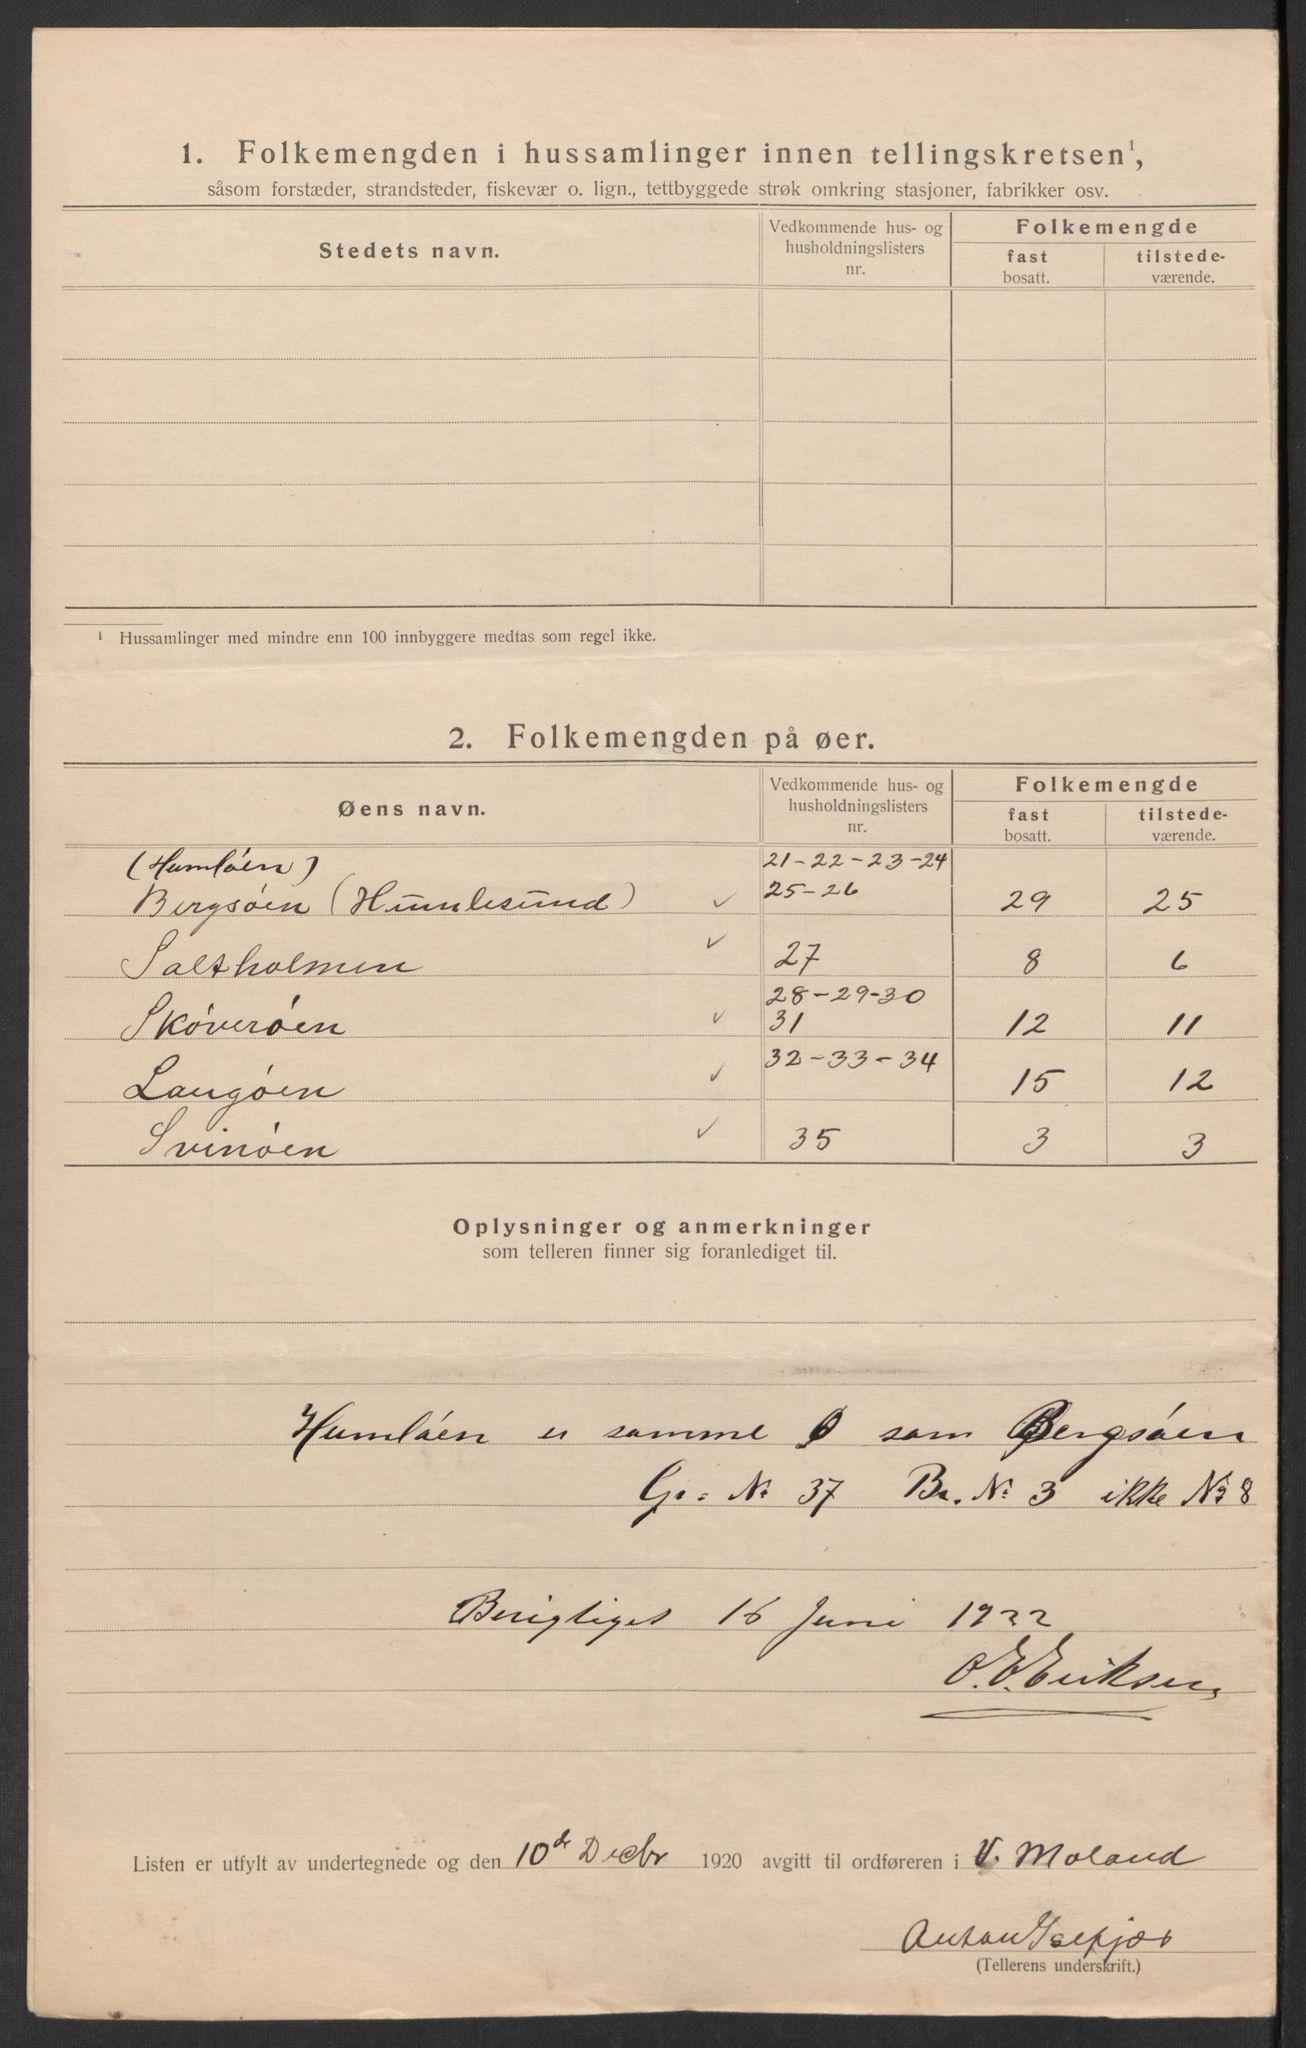 1. Folkemengden i hussamlinger innen tellingskretsen¹,
såsom forstæder, strandsteder, fiskevær o. lign., tettbyggede strøk omkring stasjoner, fabrikker osv.
Stedets navn.
Vedkommende hus- og
husholdningslisters
nr.
Folkemengde
fast
bosatt.
tilstede-
værende.
¹ Hussamlinger med mindre enn 100 innbyggere medtas som regel ikke.
2. Folkemengden på øer.
Øens navn.
Vedkommende hus- og
husholdningslisters
nr.
Folkemengde
fast
bosatt.
tilstede-
værende.
(Humløen) 21-22-23-24
Bergsøen (Humlesund) ✓ 25-26 29 25
Saltholmen ✓ 27 8 6
28-29-30
Skøverøen ✓ 31 12 11
32-33-34
Langøen ✓ 15 12
Svinøen ✓ 35 3 3
Oplysninger og anmerkninger
som telleren finner sig foranlediget til.
Humløen er samme Ø som Bergsøen
Gr. № 37 Br. № 3 ikke № 8
Berigtiget 16 Juni 1922
O. E. Eriksen
Listen er utfylt av undertegnede og den 10de Decbr 1920 avgitt til ordføreren i V. Moland
Anton Isefjær
(Tellerens underskrift.)